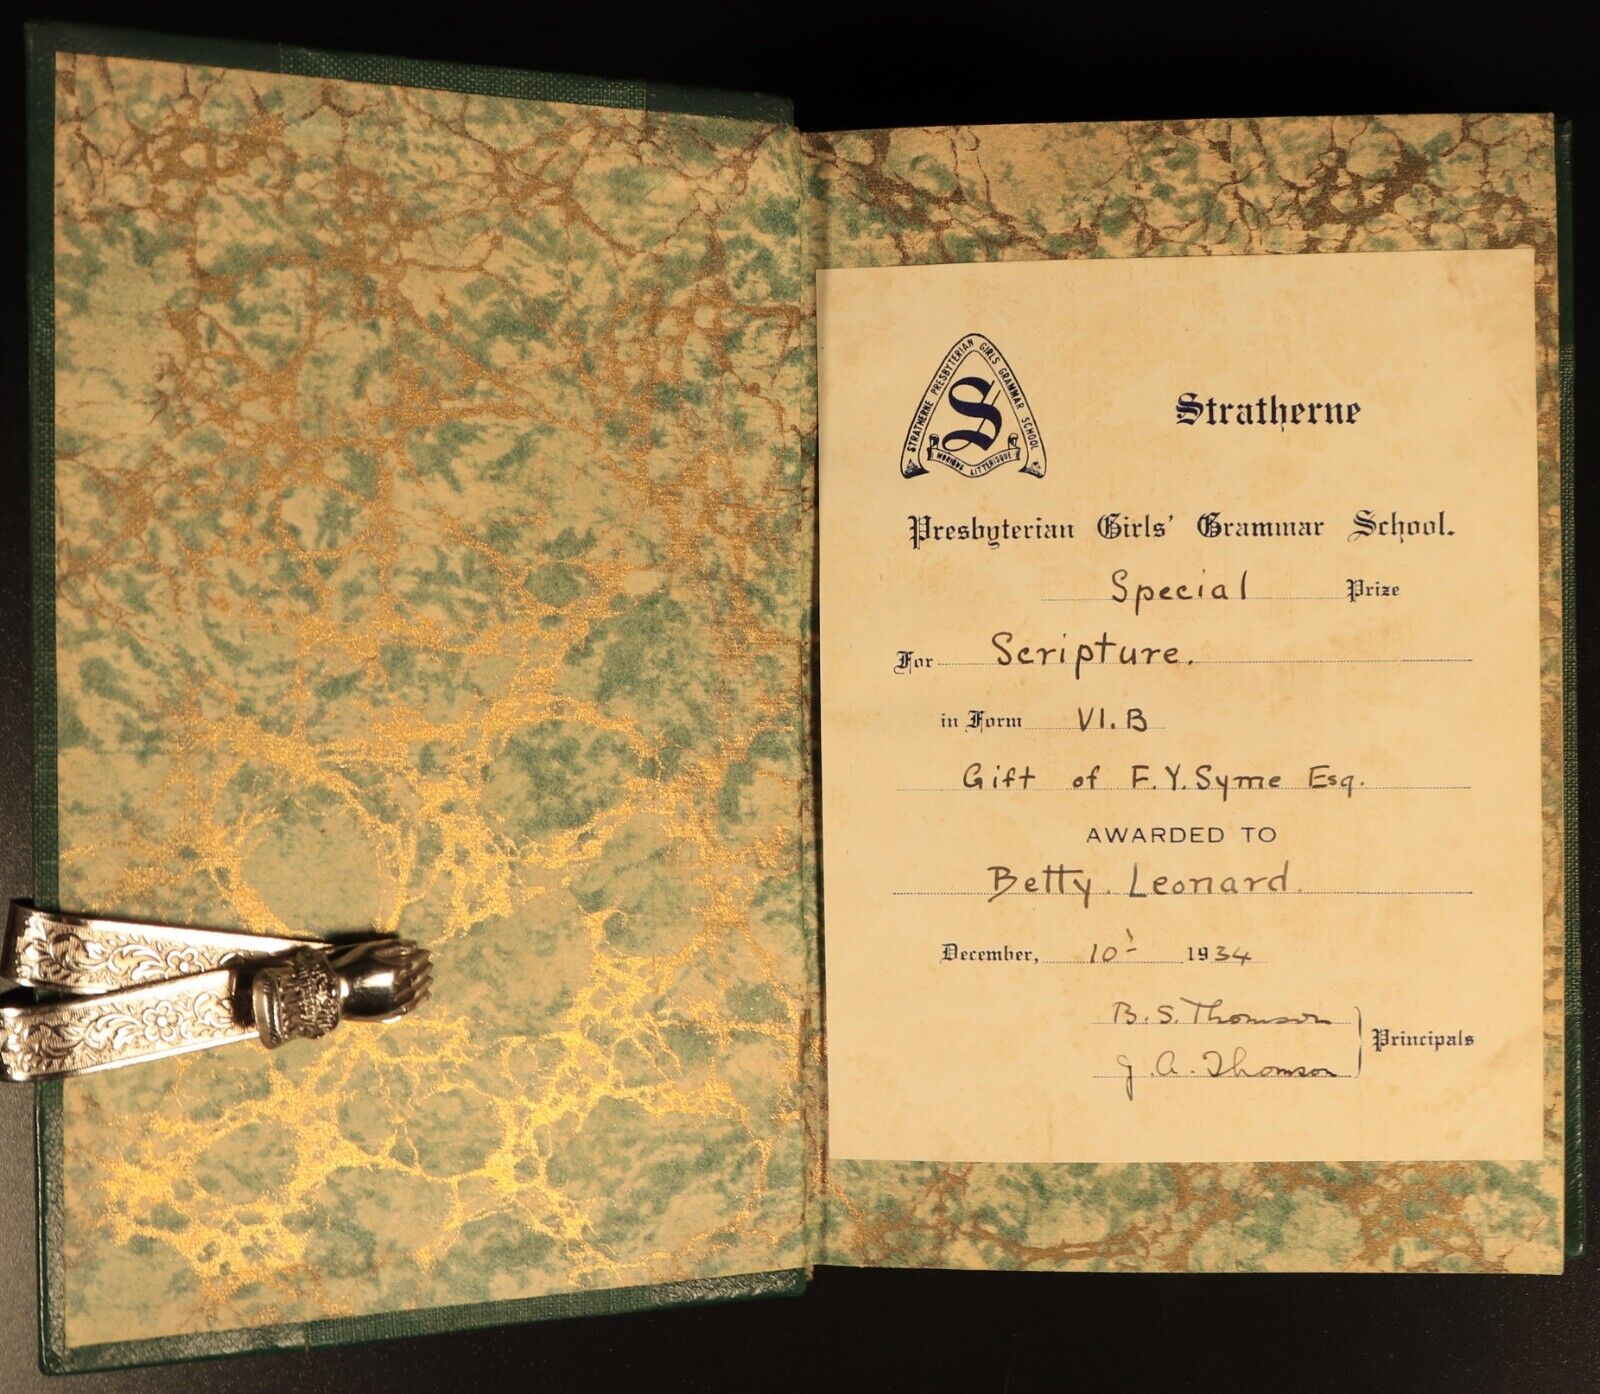 STRATHERNE PRESBYTERIAN GIRLS GRAMMAR SCHOOL
S
MORIBUS LITTERISQUE
Stratherne
Presbyterian Girls' Grammar School.
Special Prize
For Scripture.
in Form VI.B
Gift of F.Y. Syme Esq.
AWARDED TO
Betty Leonard.
December, 10 1934
B. S. Thomson
J. A. Thomson
Principals